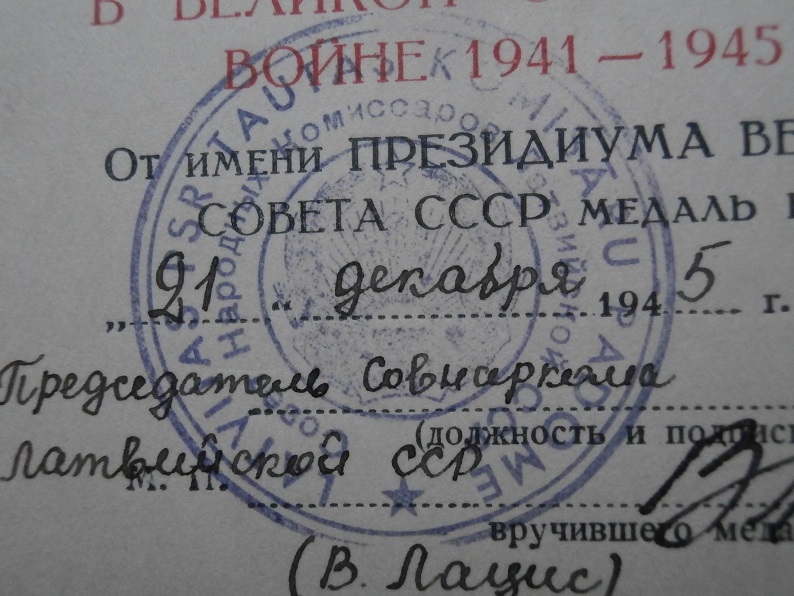 В ВЕЛИКОЙ
ВОЙНЕ 1941 — 1945
От имени ПРЕЗИДИУМА ВЕ
СОВЕТА СССР МЕДАЛЬ
„ 21 “ декабря 1945 г.
Председатель Совнаркома
(должность и подпис
Латвийской ССР
М. П.
вручившего меда
(В. Лацис)
LATVIJAS PSR TAUTAS KOMISARU PADOME
Совет Народных Комиссаров Латвийской ССР